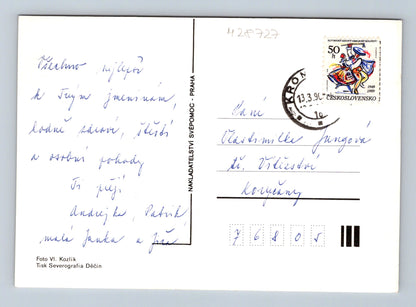 428727
Všechno nejlepší
k Tvým jmeninám,
hodně zdraví, štěstí
a osobní pohody
Ti přejí
Andrejka, Patrik
malá Janka a Jiří
Foto Vl. Kozlík
Tisk Severografia Děčín
NAKLADATELSTVÍ SVÉPOMOC - PRAHA
50
h
ČESKOSLOVENSKO
KROM
13.3.9
1c
Paní
Vlastimilka Jungová
tř. Vítězství
Koryčany
76805